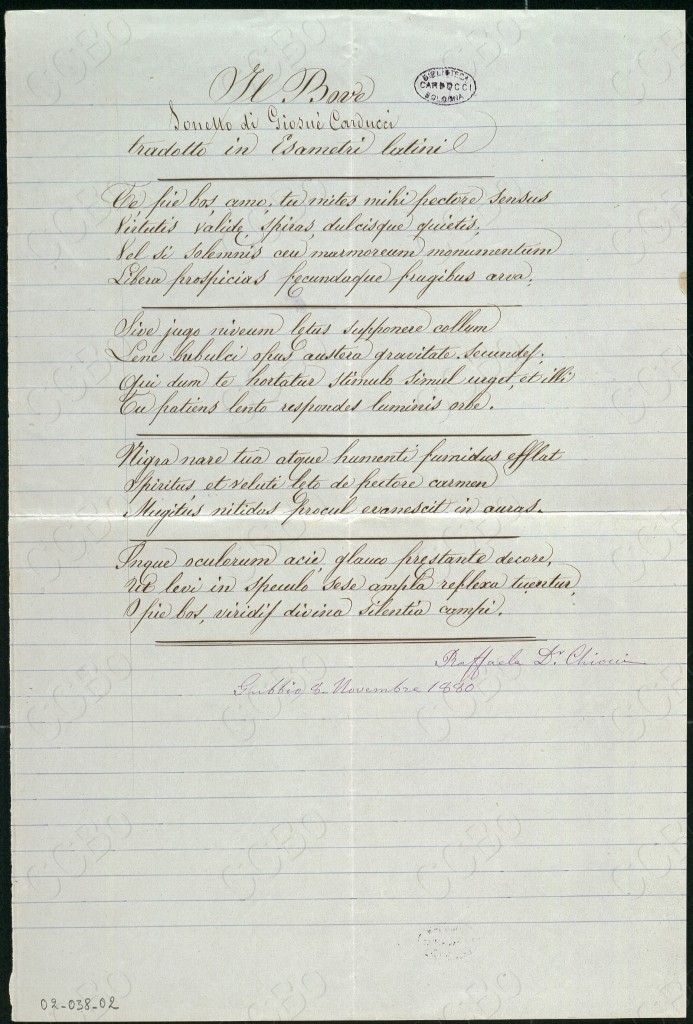 Il Bove
BIBLIOTECA
CARDUCCI
BOLOGNA
Sonetto di Giosuè Carducci
tradotto in Esametri latini
Te pie bos, amo, tu mites mihi pectore sensus
Virtutis valide, spiras, dulcisque quietis;
Vel si solemnis ceu marmoreum monumentum
Libera prospicias fecundaque frugibus arva;
Sive jugo niveum letus supponere collum
Lene bubulci opus austera gravitate secundes;
Qui dum te hortatur stimulo simul urget, et illi
Tu patiens lento respondes luminis orbe.
Nigra nare tua atque humenti fumidus efflat
Spiritus et veluti leto de pectore carmen
Mugitus nitidas procul evanescit in auras.
Inque oculorum acie, glauco prestante decore,
Ut levi in speculo sese ampla reflexa tuentur,
O pie bos, viridis divina silentia campi.
Raffaele Dr.
Gubbio 8 Novembre 1880
02-038-02
CCBO